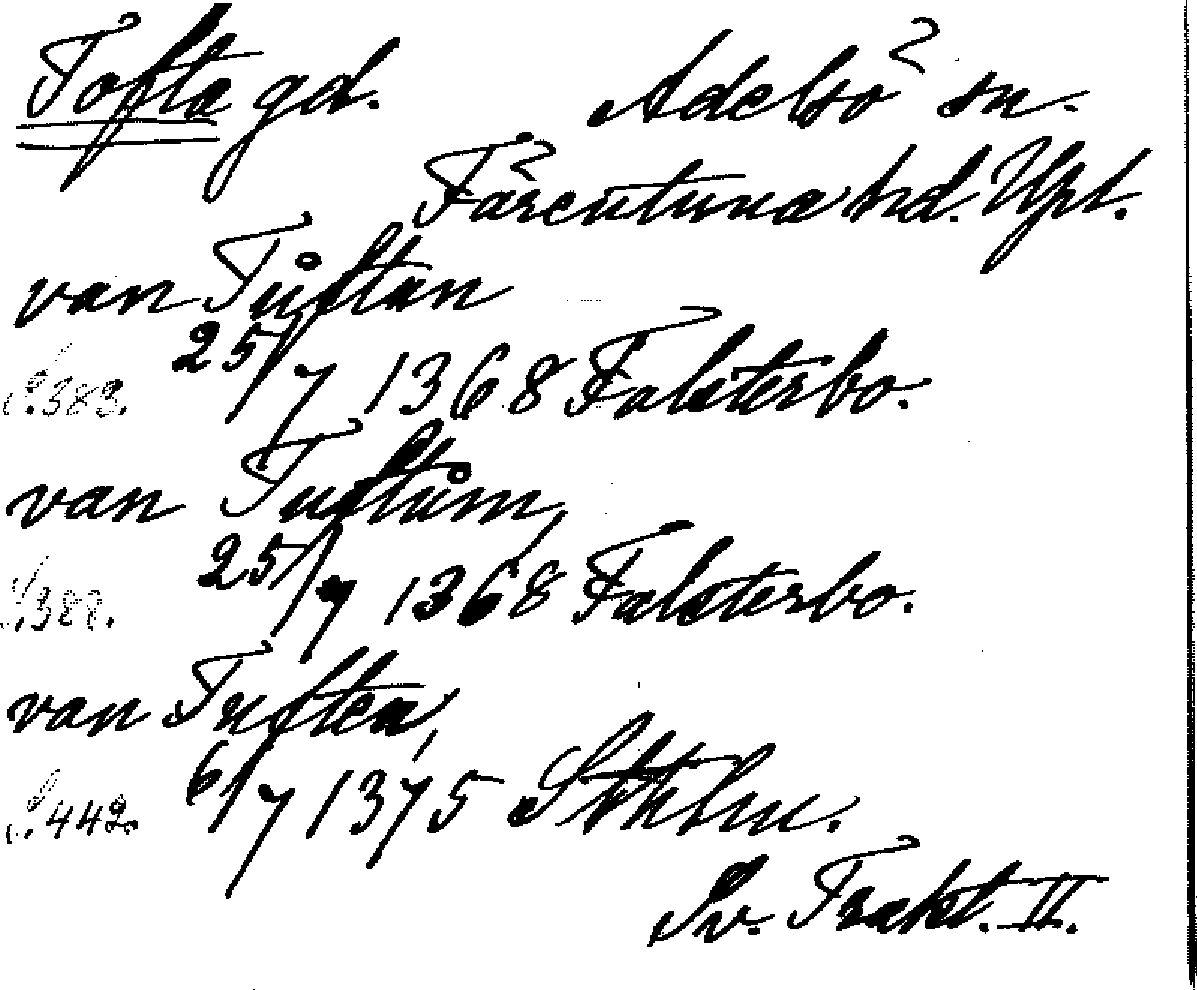 Tofta gd. Adelsö sn.
Färentuna hd. Upl.
van Tůftan
25/7 1368 Falsterbo.
S. 383.
van Tuftům,
25/7 1368 Falsterbo.
S. 388.
van Tuften,
6/7 1375 Sthlm.
S. 442.
Sv. Trakt. II.